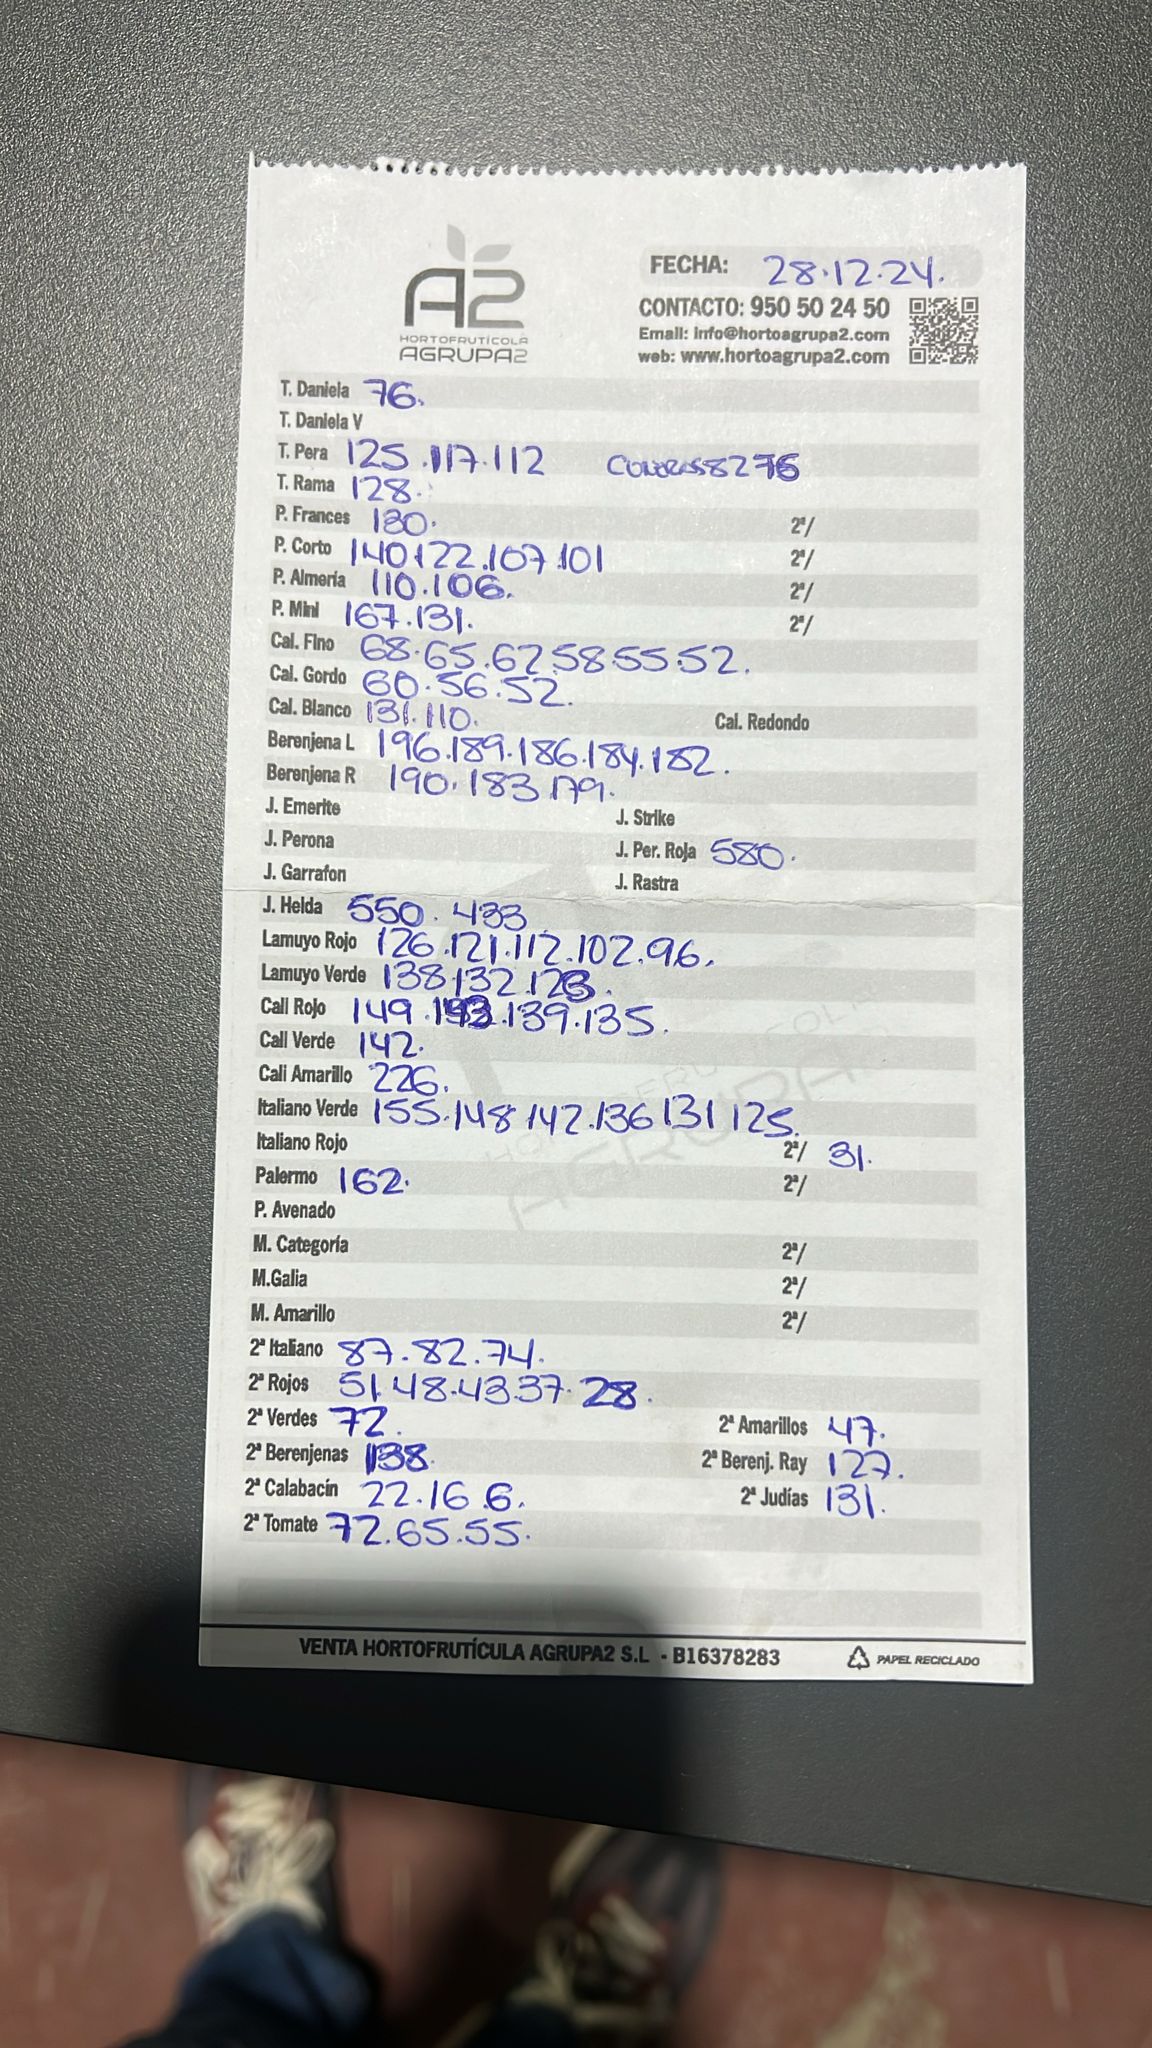 A2
HORTOFRUTÍCOLA
AGRUPA2
FECHA: 28.12.24.
CONTACTO: 950 50 24 50
Email: info@hortoagrupa2.com
web: www.hortoagrupa2.com
T. Daniela 76.
T. Daniela V
T. Pera 125.117.112 8276
T. Rama 128.
P. Frances 130.
2ª/
P. Corto 140.122.107.101 2ª/
P. Almería 110.106. 2ª/
P. Mini 167.131. 2ª/
Cal. Fino 68.65.62.58.55.52.
Cal. Gordo 60.56.52.
Cal. Blanco 131.110. Cal. Redondo
Berenjena L 196.189.186.184.182.
Berenjena R 190.183.179.
J. Emerite J. Strike
J. Perona J. Per. Roja 580.
J. Garrafon J. Rastra
J. Helda 550. 433
Lamuyo Rojo 126.121.112.102.96.
Lamuyo Verde 138.132.
Cali Rojo 149. .139.135.
Cali Verde 142.
Cali Amarillo 226.
Italiano Verde 155.148.142.136 131 125.
Italiano Rojo 2ª/ 31.
Palermo 162. 2ª/
P. Avenado
M. Categoría 2ª/
M.Galia 2ª/
M. Amarillo 2ª/
2ª Italiano 87.82.74.
2ª Rojos 51.48.43.37.28.
2ª Verdes 72. 2ª Amarillos 47.
2ª Berenjenas 138. 2ª Berenj. Ray 127.
2ª Calabacín 22.16 6. 2ª Judías 131.
2ª Tomate 72.65.55.
VENTA HORTOFRUTÍCULA AGRUPA2 S.L - B16378283 PAPEL RECICLADO